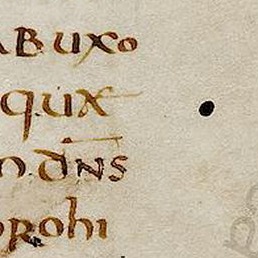 ABUXO
q.UX
m.dNS
prohi